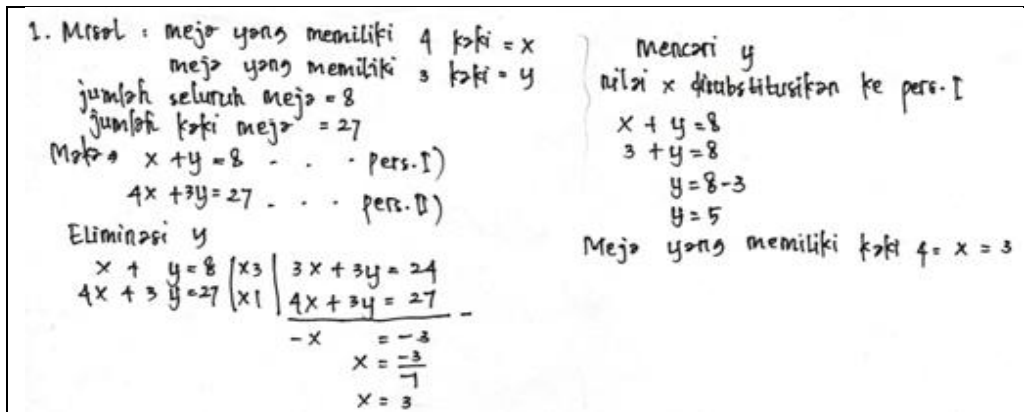 1. Misal : meja yang memiliki 4 kaki = x
meja yang memiliki 3 kaki = y
jumlah seluruh meja = 8
jumlah kaki meja = 27
Maka x + y = 8 . . . pers. I)
4x + 3y = 27 . . . pers. II)
Eliminasi y
x + y = 8 | x3 | 3x + 3y = 24
4x + 3y = 27 | x1 | 4x + 3y = 27 -
-x = -3
x = -3/-1
x = 3
mencari y
nilai x disubstitusikan ke pers. I
x + y = 8
3 + y = 8
y = 8-3
y = 5
Meja yang memiliki kaki 4 = x = 3